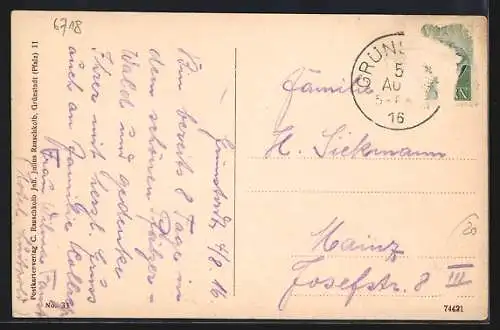 6718
Grünstadt, 4/8 16.
Bin bereits 8 Tage in
dem schönen Pfälzer-
Wald und gedenke
Ihrer mit herzl. Gruss
auch an Familie
Frau
Postkartenverlag C. Rauschkolb Inh. Julius Rauschkolb, Grünstadt (Pfalz) II
No. 33
GRÜN
5
AU
16
Familie
H. Siekmann
Mainz
Josefstr. 8 III
20
74421